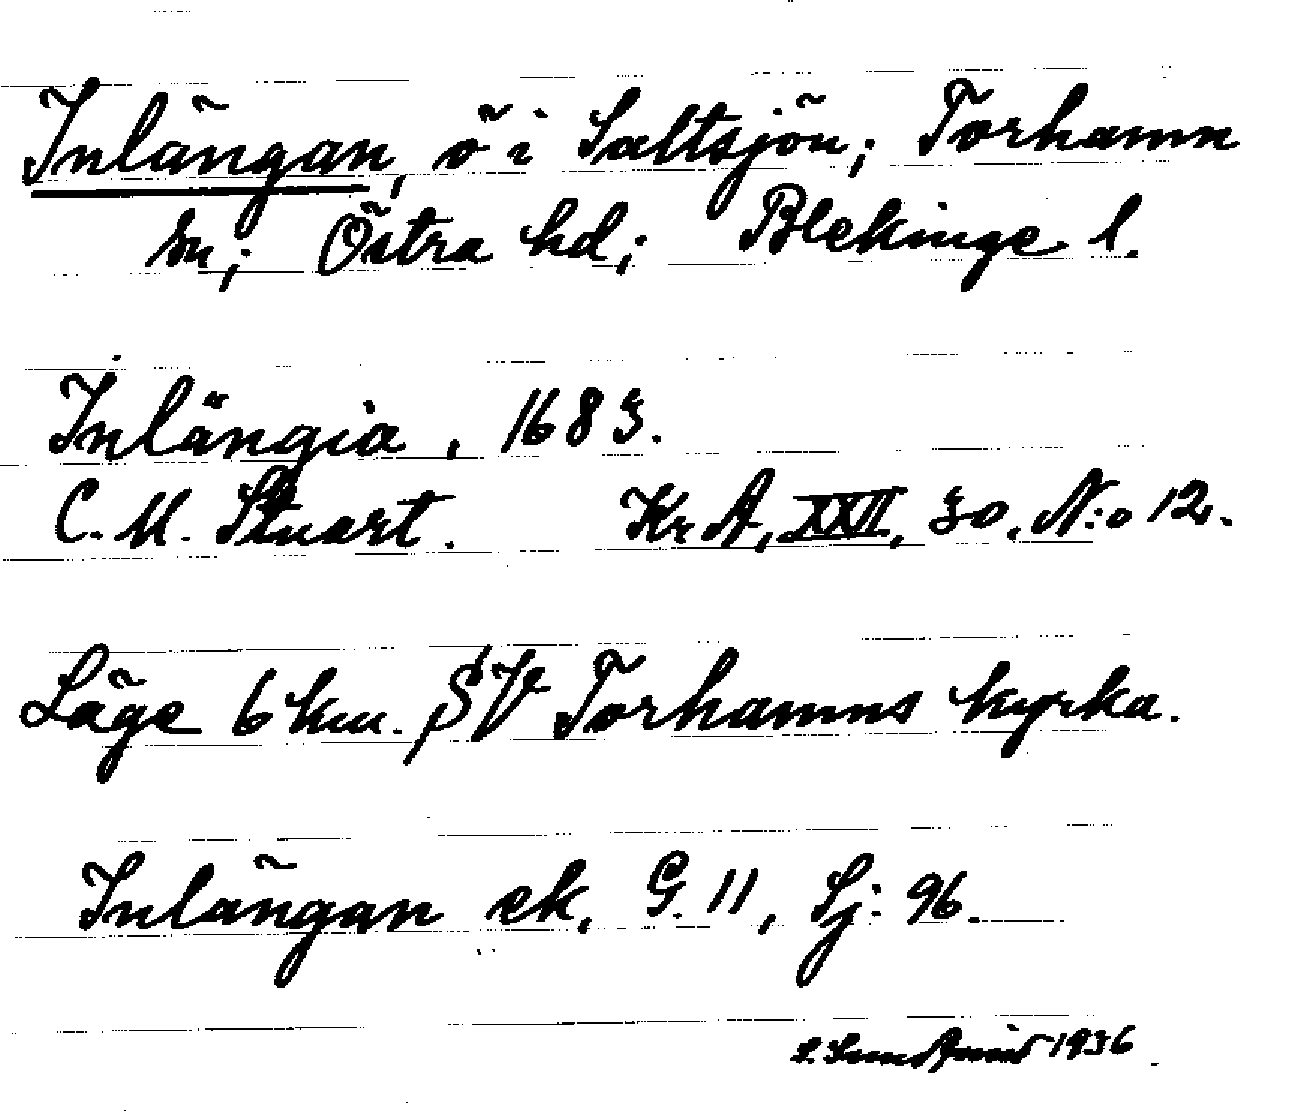 Inlängan, ö i Saltsjön; Torhamn
sn; Östra hd; Blekinge l.
Inlängia, 1683.
C. M. Stuart. Kr A, XXII, 30, N:o 12.
Läge 6 km. SV Torhamns kyrka.
Inlängan ek. G. 11, Sj: 96.
1936